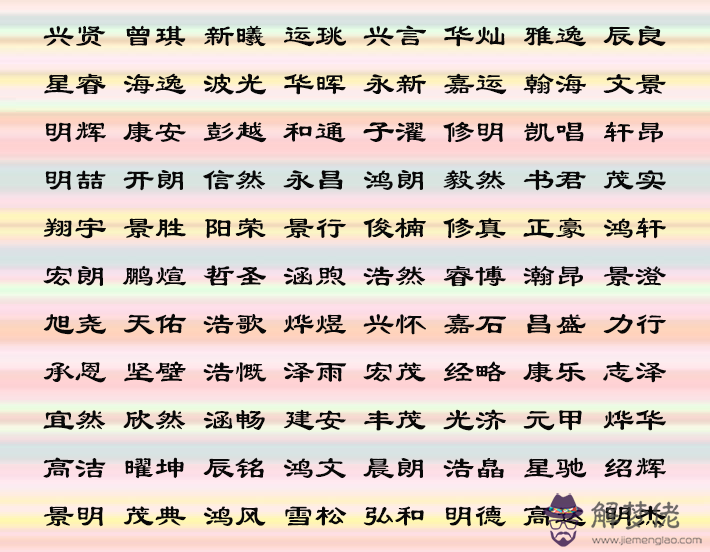 兴贤 曾琪 新曦 运珧 兴言 华灿 雅逸 辰良
星睿 海逸 波光 华晖 永新 嘉运 翰海 文景
明辉 康安 彭越 和通 子濯 修明 凯唱 轩昂
明喆 开朗 信然 永昌 鸿朗 毅然 书君 茂实
翔宇 景胜 阳荣 景行 俊楠 修真 正豪 鸿轩
宏朗 鹏煊 哲圣 涵煦 浩然 睿博 瀚昂 景澄
旭尧 天佑 浩歌 烨煜 兴怀 嘉石 昌盛 力行
承恩 坚壁 浩慨 泽雨 宏茂 经略 康乐 志泽
宜然 欣然 涵畅 建安 丰茂 光济 元甲 烨华
高洁 曜坤 辰铭 鸿文 晨朗 浩皛 星驰 绍辉
景明 茂典 鸿风 雪松 弘和 明德 高达 明杰
解梦佬
www.jiemenglao.com